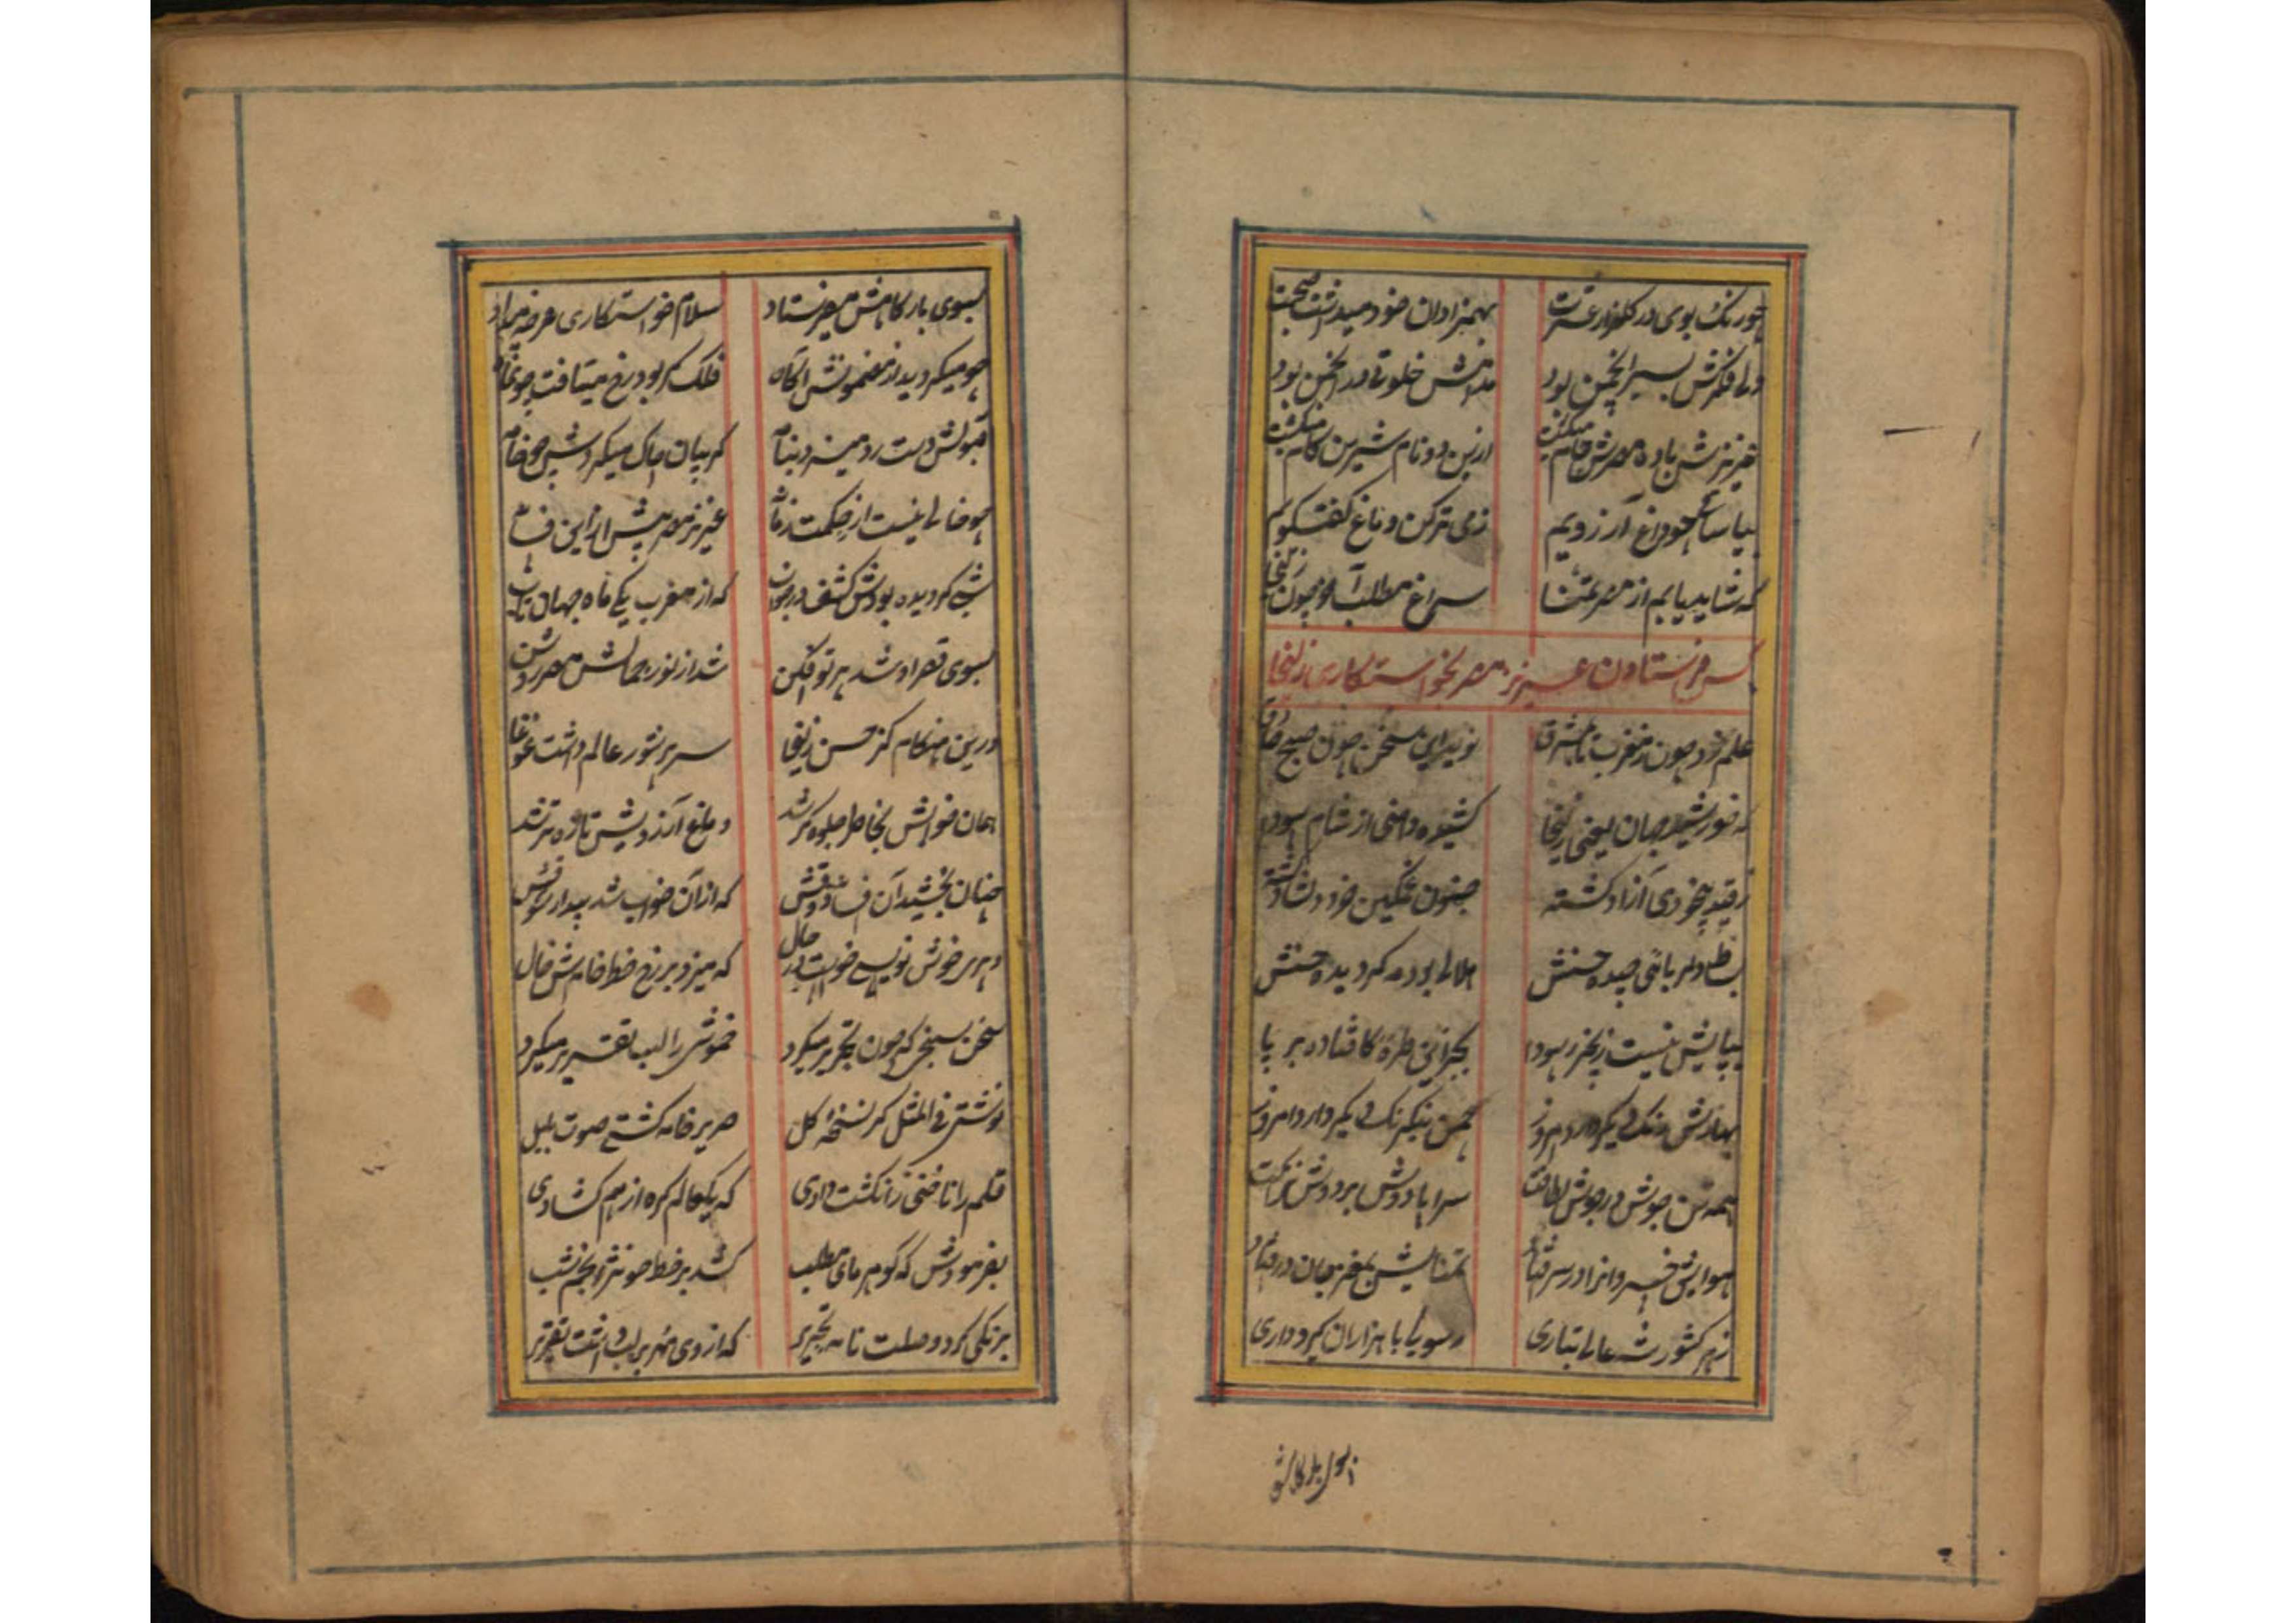 چو رنگ بوی در گلزار عشرت بهمزادان خود میداشت صحبت
ولی فکرش بسیر انجمن بود مدامش خلوتی در انجمن بود
عزیزش باده مصرش جام میگشت ازین دو نام شیرین کام میگشت
بیا ساقی چو داغ آرزویم ز می تر کن دماغ گفتگویم
که شاید یابم از مصر تمنا سراغ مطلب آمو چون زلیخا
کس فرستادن عزیز مصر بخواستگاری زلیخا
علم زد چون ز مغرب تا بمشرق نوید این سخن چون صبح صادق
که خورشید جهان یعنی زلیخا کشیده دامنی از شام سودا
ز قید بیخودی آزاد گشته جنون غمگین خرد دلشاد گشته
بساط دلربائی چیده حسنش هلالی بود مه گردیده حسنش
بپایش نیست زنجیر سودا بجز آن طره کافتاده بر پا
بهارش رنگ دیگر دارد امروز چمن نیرنگ دیگر دارد امروز
همه تن جوش در جوش لطافت سراپا دوش بر دوش نزاکت
هوایش خسروانرا در سر افتاد تمنایش بمغز جان در افتاد
ز هر کشور شه عالی تباری رسولی با هزاران گیروداری
بسوی بارگاهش
بسوی بارگاهش میفرستاد سلام خواستگاری عرضه میداد
چو میگردید از مضمونش آگاه فلک گر بود رخ میتافت چون ماه
قبولش دست رد میزد بنامه گریبان چاک میکردش چو خامه
چو خالی نیست از حکمت زمانه عزیز مصر پیش از این فسانه
شبی گردیده بودش کشف در خواب که از مغرب یکی ماه جهان تاب
بسوی قصر او شد پرتو افکن شد از نور جمالش مصر روشن
درین هنگام کز حسن زلیخا سراسر شور عالم داشت غوغا
همان خوابش بخاطر جلوه گر شد دماغ آرزویش تازه تر شد
چنان بخشید آن افسانه ذوقش که از آن خواب شد بیدار شوقش
دبیری خوش نویسی خواست در حال که میزد بر رخ خط خامه‌اش خال
سخن سنجی که چون تحریر میکرد خموشی را لب تقریر میکرد
نوشتی فی المثل گر نسخه گل صریر خامه گشتی صوت بلبل
قلم را ناخنی ز انگشت دادی که یکعالم گره از هم گشادی
بفرمودش که گوهرهای مطلب کشد بر خط چو نثر انجم شب
برنگی کرد وصلت نامه تحریر که از وی مهر بر لب داشت تقریر